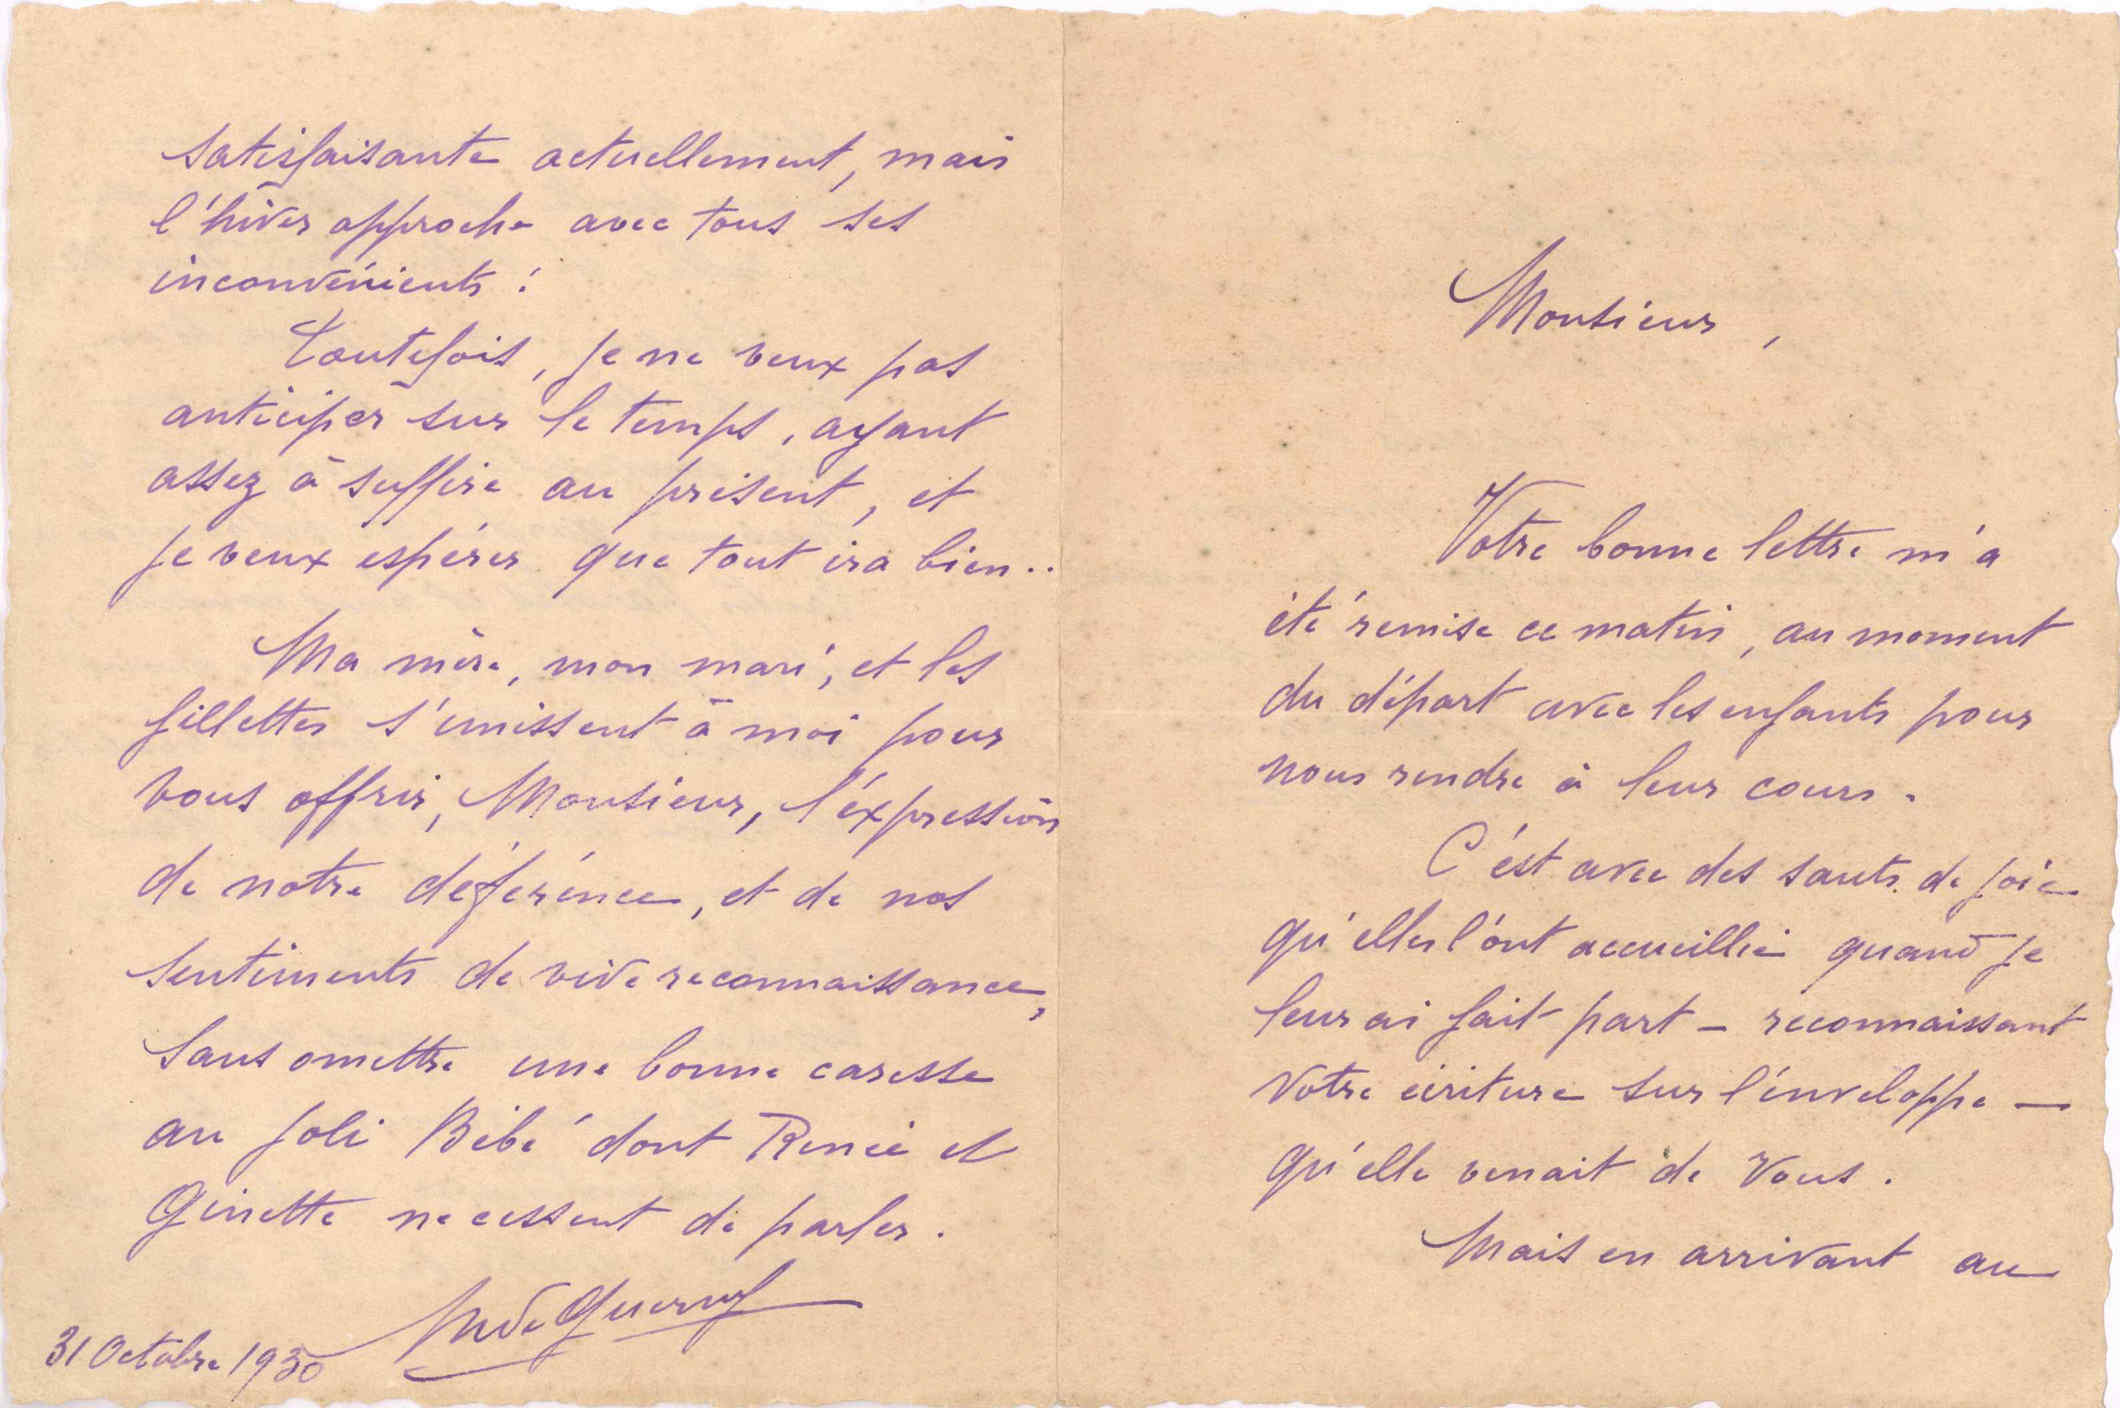 satisfaisante actuellement, mais
l'hiver approche avec tous ses
inconvénients !
Toutefois, je ne veux pas
anticiper sur le temps, ayant
assez à suffire au présent, et
je veux espérer que tout ira bien..
Ma mère, mon mari, et les
fillettes s'unissent à moi pour
vous offrir, Monsieur, l'éxpression
de notre déférence, et de nos
sentiments de vive reconnaissance,
sans omettre une bonne caresse
au joli Bébé dont Renée et
Ginette ne cessent de parler.
31 Octobre 1930
Monsieur,
Votre bonne lettre m'a
été remise ce matin, au moment
du départ avec les enfants pour
nous rendre à leur cours.
C'est avec des sauts de joie
qu'elles l'ont accueillie quand je
leur ai fait part – reconnaissant
votre écriture sur l'enveloppe —
qu'elle venait de Vous.
Mais en arrivant au